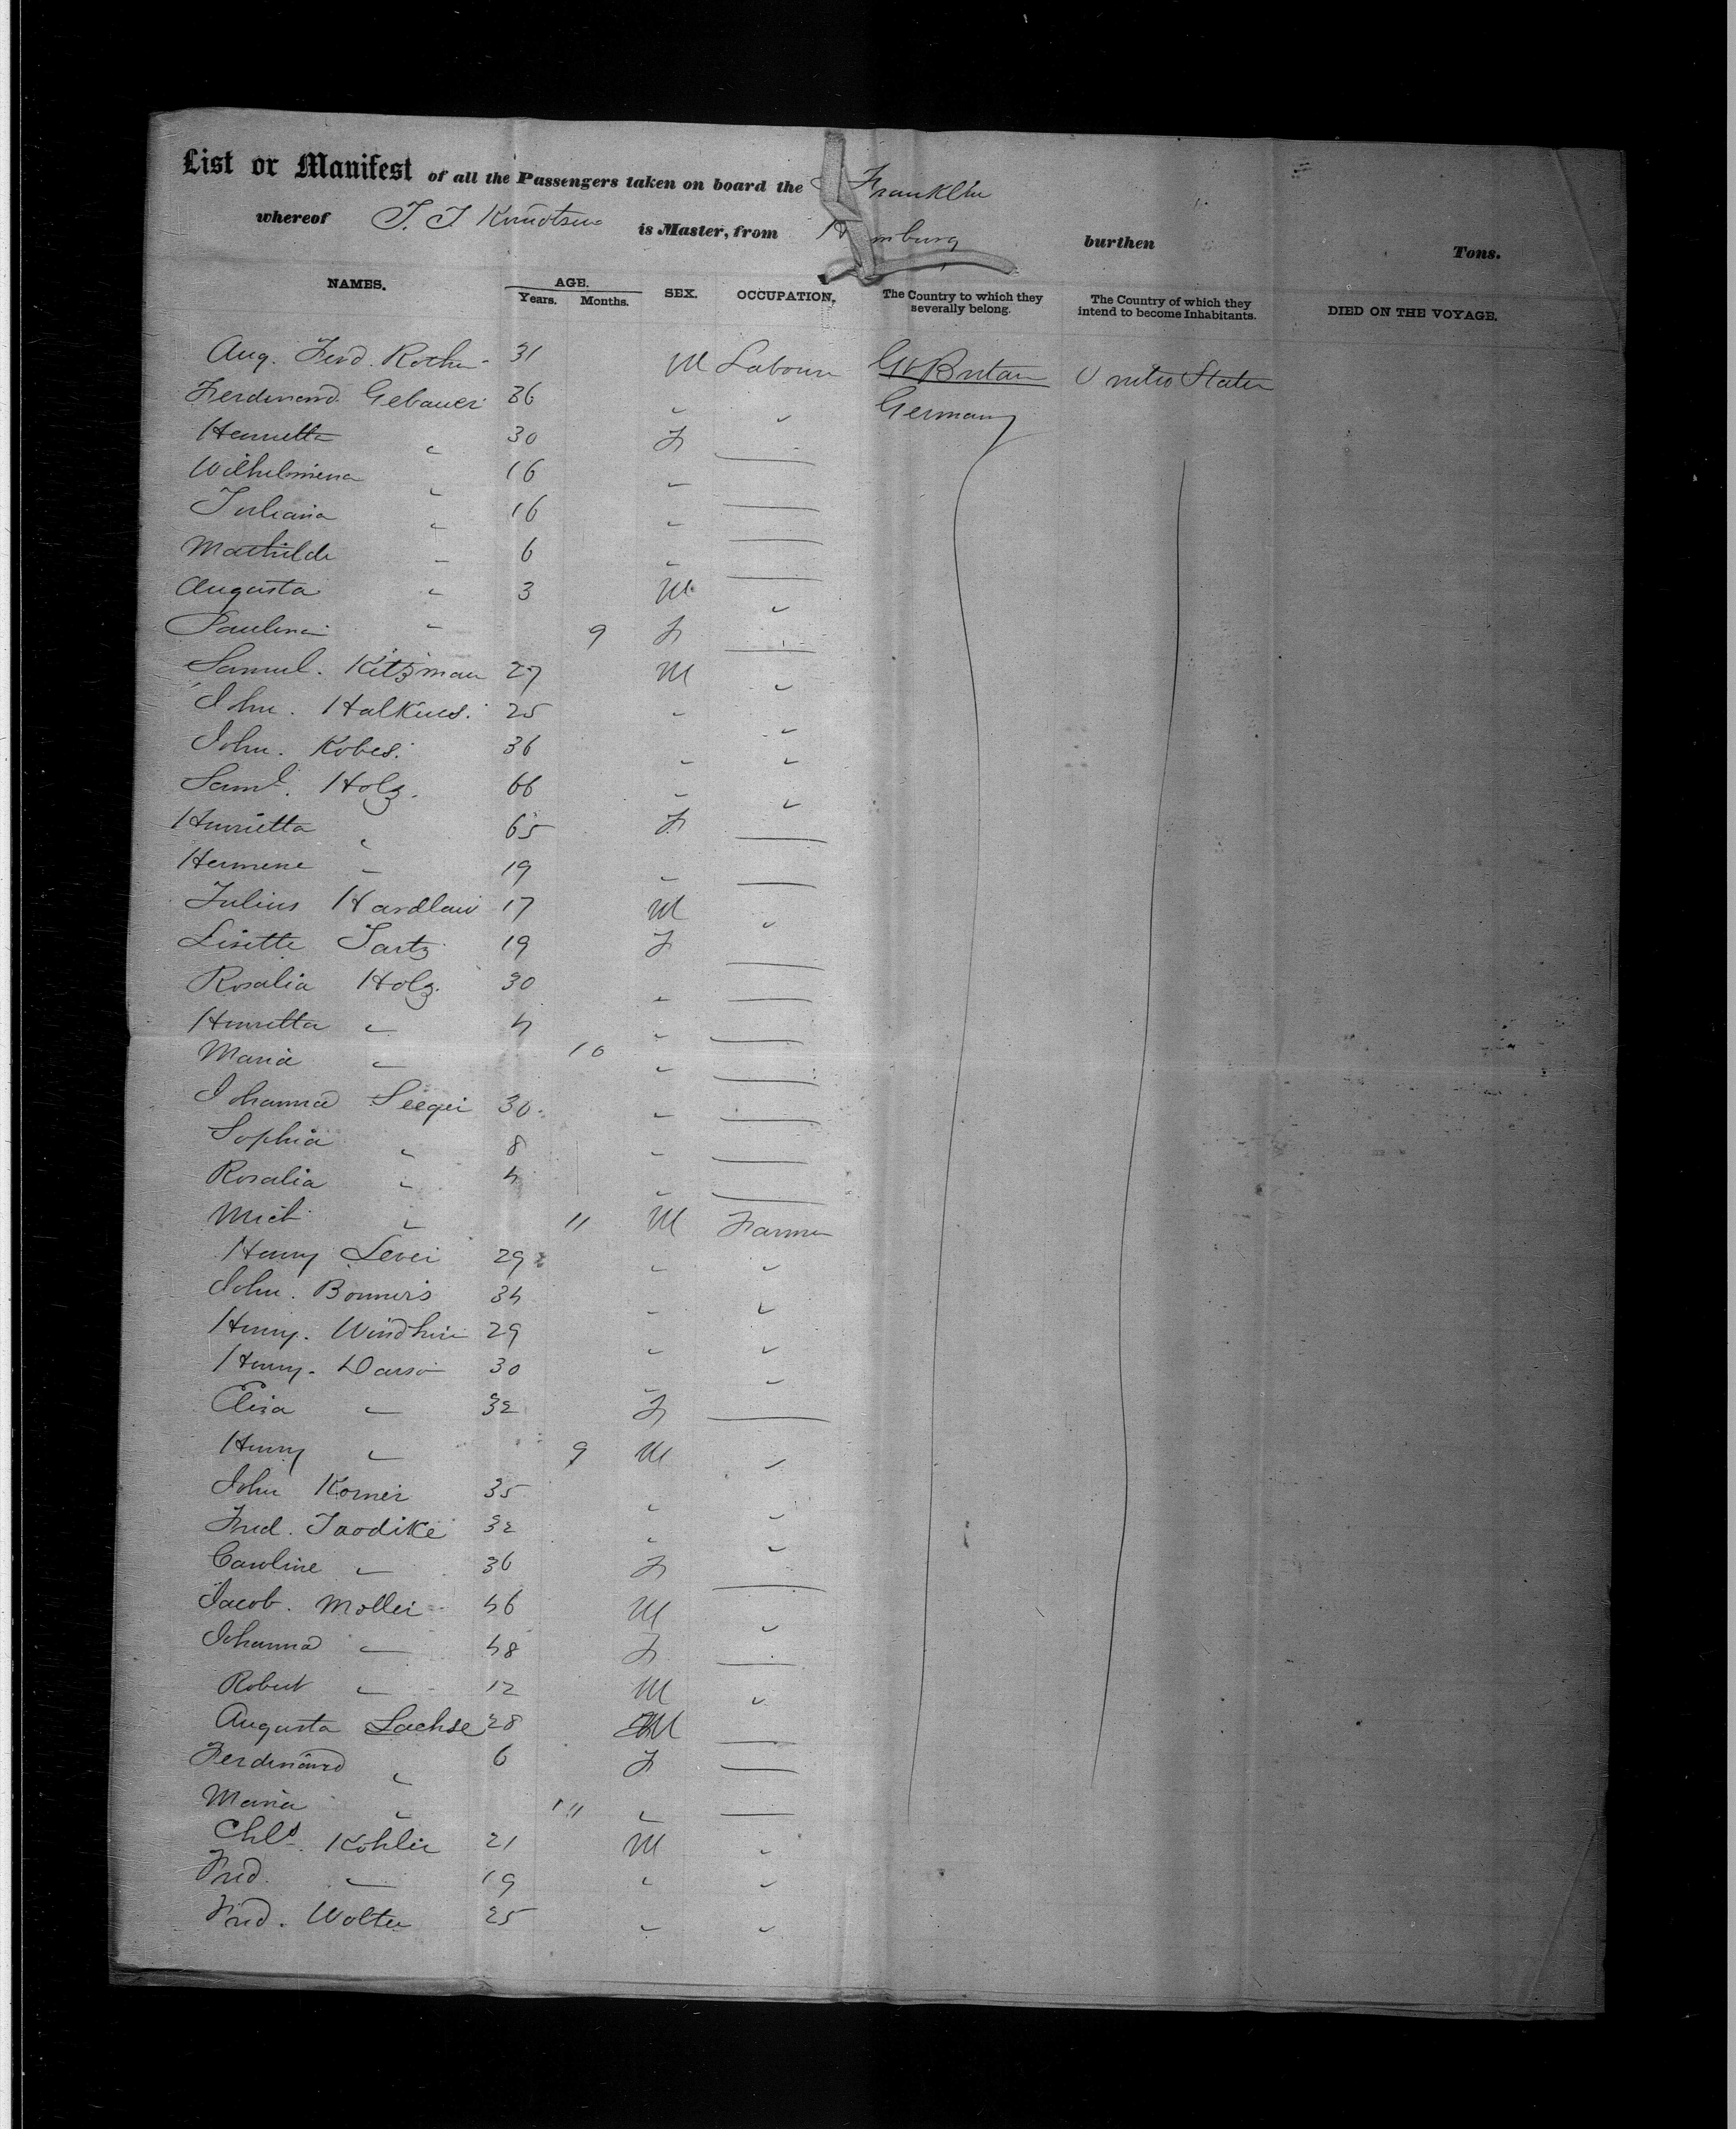 List or Manifest of all the Passengers taken on board the Franklin
whereof J. J. Knudtsen is Master, from H mburg burthen Tons.
NAMES. AGE. Years. Months. SEX. OCCUPATION. The Country to which they severally belong. The Country of which they intend to become Inhabitants. DIED ON THE VOYAGE.
Aug. Ferd. Rother 31 M Labourer Gt Britain United States
Ferdinand Gebauer 36 " " Germany
Henrietta " 30 F —
Wilhelmiena " 16 " —
Juliana " 16 " —
Mathilde " 6 " —
Augusta " 3 M "
Paulina " 9 F —
Samuel. Kitzman 27 M "
John. Halkues. 25 " "
John. Kobes. 36 " "
Saml. Holz. 66 " "
Henrietta " 65 F —
Hermene " 19 " —
Julius Hardlaw 17 M "
Lisette Jartz 19 F —
Rosalia Holz. 30 " —
Henrietta " 4 " —
Maria " 10 " —
Johanna Seeger 30 " —
Sophia " 8 " —
Rosalia " 4 " —
Mich " 11 M Farmer
Henry Lever 29 " "
John. Bonners 34 " "
Henry. 29 " "
Henry. 30 " "
Elisa " 32 F —
Henry " 9 M "
John Korner 35 " "
Fred. Taodike 32 " "
Caroline " 36 F —
Jacob. Moller 46 M "
Johanna " 48 F —
Robert " 12 M "
Augusta Sachse 28 M —
Ferdinand " 6 F —
Maria " 11 " —
Chls. Kohler 21 M "
Fred. " 19 " "
Fred. Wolter 25 " "